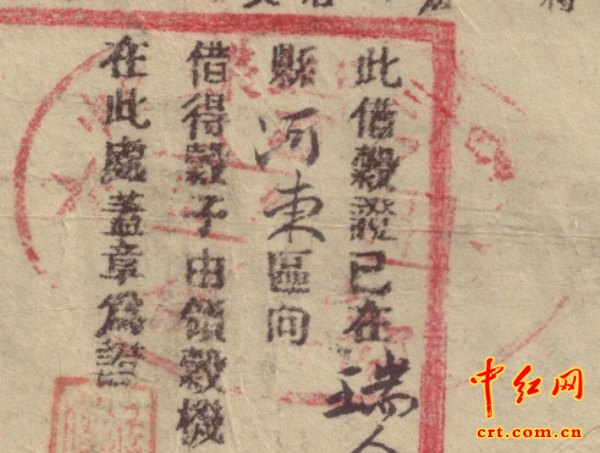 此借穀證已在瑞
縣河東區向
借得穀子由領穀機
在此處蓋章為證
中红网
crt.com.cn